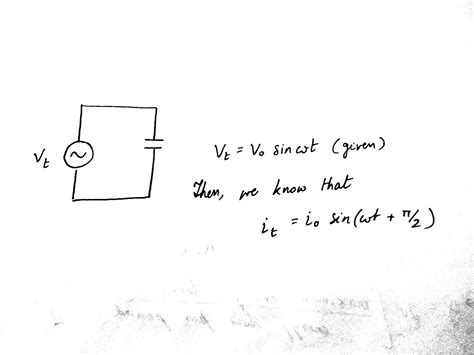 V_t
V_t = V_0 sin ωt (given)
Then, we know that
i_t = i_0 sin(ωt + π/2)